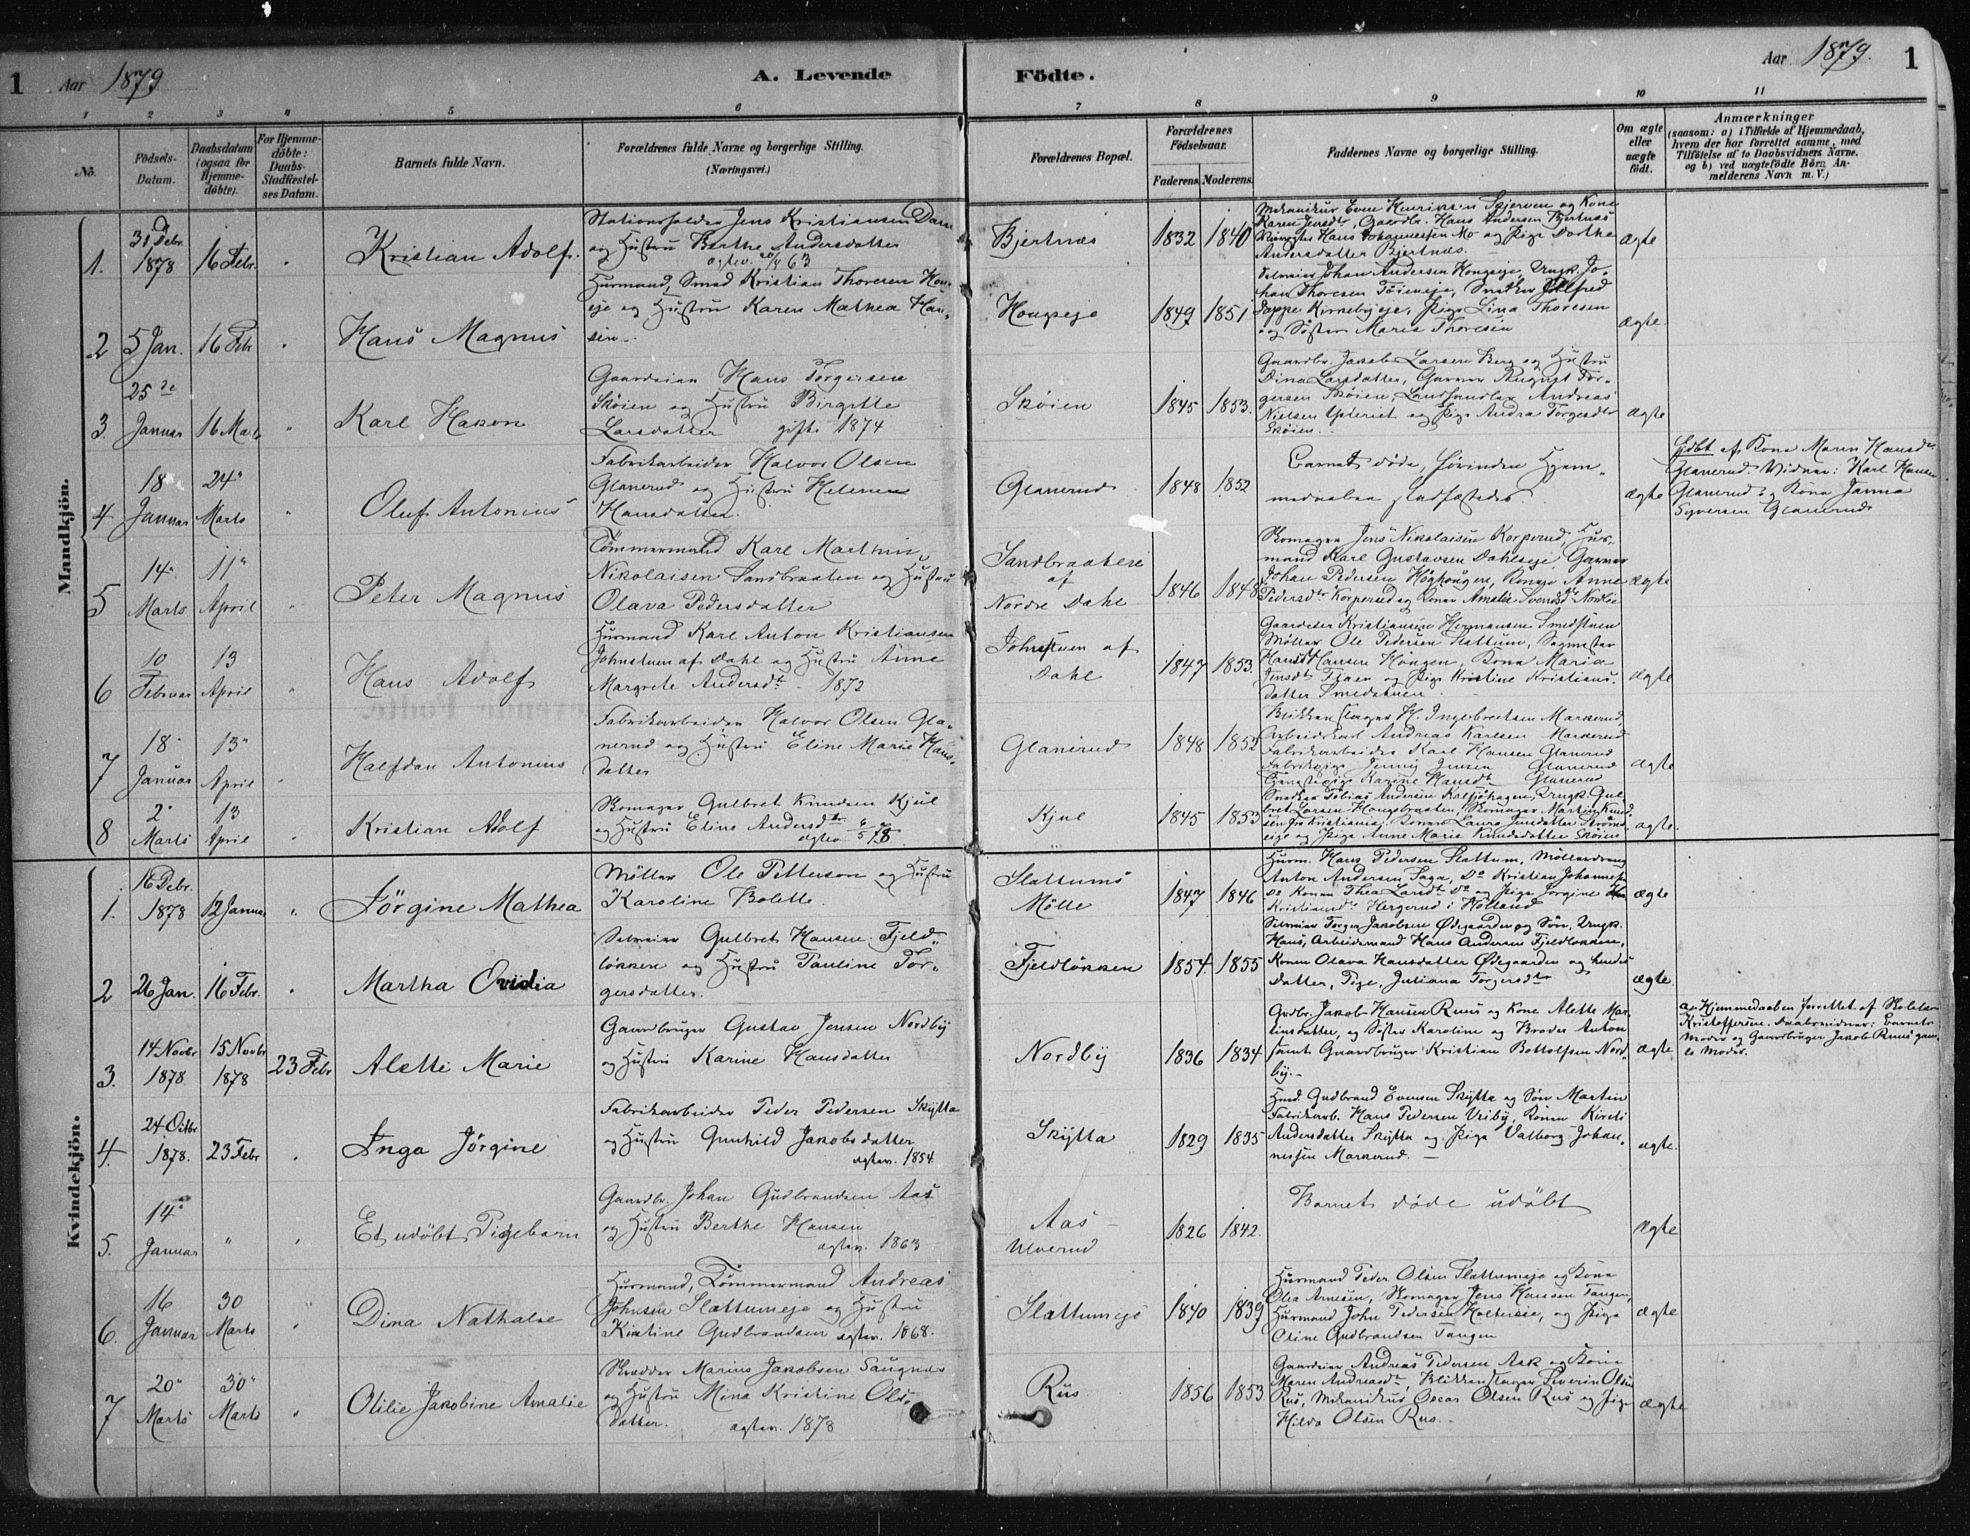 1 Aar 1879 A. Levende Födte. Aar 1879. 1
1 2 3 4 5 6 7 8 9 10 11
No.
Födsels-Datum.
Daabsdatum (ogsaa for Hjemme-döbte).
For Hjemme-döbte: Daabs-Stadfæstel-ses Datum.
Barnets fulde Navn.
Forældrenes fulde Navne og borgerlige Stilling. (Næringsvei.)
Forældrenes Bopæl.
Forældrenes Födselsaar.
Faderens. Moderens.
Faddernes Navne og borgerlige Stilling.
Om ægte eller uægte födt.
Anmærkninger
(saasom: a) i Tilfælde af Hjemmedaab, hvem der har forrettet samme, med Tilföielse af to Daabsvidners Navne, og b) ved uægtefödte Börn Anmelderens Navn m. V.)
Mandkjön.
1. 31 Debr. 1878 16 Febr. Kristian Adolf.
Stationsholder Jens Kristiansen Dam
og Hustru Berthe Andersdatter
Bjertnæs 1832 1840
Karen Jensdtr, Gaardbr. Hans Andersen Bjertnæs
Hans Johannessen Mo og Pige Dorthe
Andersdatter Bjertnæs.
ægte
2 5 Jan. 16 Febr Hans Magnus
Husmand, Smed Kristian Thoresen Hon-
eje og Hustru Karen Mathea Han-
sen.
1849 1851
Selveier Johan Andersen
han Thoresen
Pige Lina Thoresen
og Söster Maria Thoresen
ægte.
3. 25de Januar 16 Marts Karl Hakon
Gaardeier Hans Torgersen
Sköien og Hustru Birgitte
Larsdatter gift 1874
Sköien 1845 1853.
Gaardbr. Jakob Larsen Berg og Hustru
Dina Larsdatter, August Tor-
gersen Sköien, Landhandler Andreas
Nielsen og Pige Andra Torgersdtr
Sköien.
ægte
4 18 Januar 24 Marts Oluf Antonius
Fabrikarbeider Halvor Olsen
Glanerud og Hustru Helene
Hansdatter.
Glanerud 1848 1852
Barnet döde, förinden Hjem-
medaaben stadfæstedes.
ægte
af Kone Maren Hansdtr
Glanerud. Vidner: Karl Hansen
Glanerud og Kone Janna
Syversen Glanerud
5 14 Marts 11 April Peter Magnus
Tömmermand Karl Martin
Nikolaisen Sandbraaten og Hustru
Olava Pedersdatter
Sandbraaten
af
Nordre Dahl
1846 1848
Skomager Jens Nikolaisen Korperud, Hus-
mand Karl Gustavsen Dahleje,
Johan Pedersen Anne
Pedersdtr Korperud og Amalie
ægte
6 10 Februar 13 April Hans Adolf
Husmand Karl Anton Kristiansen
Johnstuen af Dahl og Hustru Anne
Margrete Andersdtr 1872
Johnstuen af
Dahl
1847 1853
Gaardeier Kristiansen Hermansen Smedstuen
Möller Ole Pedersen Slattum,
Hansen Kone Maria
og Pige Kristine Kristians-
datter Smedstuen.
ægte
7 18 Januar 13 April Halfdan Antonius
Fabrikarbeider Halvor Olsen Gla-
nerud og Hustru Eline Marie Hans-
datter
Glanerud 1848 1852
Blikkenslager H. Ingebretsen Markerud,
Andreas Karlsen Markerud
Fabrikarbeider Karl Hansen Glanerud
Fabrikpige Jenny Jensen Glanerud
Tjenestepige Karine Hansdtr Glanerud
ægte
8 2 Marts 13 April Kristian Adolf
Skomager Gulbret Knudsen Kjul
og Hustru Eline Andersdtr
Kjul 1845 1853
Snedker Tobias Andersen
bret Larsen Skomager Martin Knud-
Laura Jensdatter
og Pige Anne Marie Knudsdatter Sköien
ægte.
Kvindekjön.
1. 16 Debr. 1878 12 Januar Jörgine Mathea
Möller Ole Petterson og Hustru
Karoline Bolette.
Slattums
Mölle
1847 1846
Husm. Hans Pedersen Slattum, Möllerdreng
Anton Andersen Saga, Do Kristian Johannesen
Do Konen Thea Larsdtr Do og Pige Jörgine
Kristiansdtr Hergerud i Hölland
ægte
2 26 Jan. 16 Febr. Martha Ovidia
Selveier Gulbret Hansen Fjeld-
lökken og Hustru Pauline Tor-
gersdatter.
Fjeldlökken 1854 1855
Selveier Torger Jakobsen Ödegaarden og Sön, Ungk.
Hans, Arbeidsmand Hans Andersen Fjeldlökken,
Konen Olava Hansdatter Ödegaarden og hendes
datter, Pige, Juliana Torgersdtr
ægte.
3. 14 Novbr 1878 15 Novbr 1878 23 Febr Alette Marie
Gaardbruger Gustav Jensen Nordby
og Hustru Karine Hansdatter
Nordby 1836 1834
Grdbr. Jakob Hansen Ruus og Kone Alette Mar-
tinsdatter, og Söster Karoline og Broder Anton
samt Gaardbruger Kristian Bottolfsen Nord-
by.
ægte
a, Hjemmedaaben forrettet af
Kristoffersen. Daabsvidner: Barnets
Moder og Gaardbruger Jakob Ruus' gam-
le Moder.
4. 24 Octbr 1878. 23 Febr Inga Jörgine
Fabrikarbeider Peder Pedersen Skytta
og Hustru Gunhild Jakobsdatter
ægtev. 1854.
Skytta 1829 1835
Husd. Gudbrand Evensen Skytta og Sön Martin
Fabrikarb. Hans Pedersen Konen Kirsti
Andersdatter Skytta og Pige Valborg Johan-
nessen Markerud.
ægte.
5. 14 Januar Et udöbt Pigebarn
Gaardbr. Johan Gudbrandsen Aas
og Hustru Berthe Hansen
ægtev. 1863
Aas
Ulverud
1826 1842.
Barnet döde udöbt
ægte
6. 16 Januar 30 Marts Dina Nathalie
Husmand, Tömmermand Andreas
Johnsen Slattumeje og Hustru
Kirstine Gudbrandsen ægtev. 1868.
Slattumeje 1840 1839
Husmand Peder Olsen Slattumeje og Kone
Olea Arnesen, Skomager Jens Hansen Tangen,
Husmand John Pedersen og Pige
Oline Gudbrandsen Tangen
ægte
7 20 Marts 30 Marts Otilie Jakobine Amalie
Skrædder Marius Jakobsen
og Hustru Mina Kristine Ols-
datter. ægtev. 1878
Rus 1856 1853
Gaardeier Andreas Pedersen Ask og Kone
Maren Andreasdtr, Blikkenslager Severin Olsen
Rus, Mekanikus Oscar Olsen Rus og Pige
Hilda Olsen Rus.
ægte